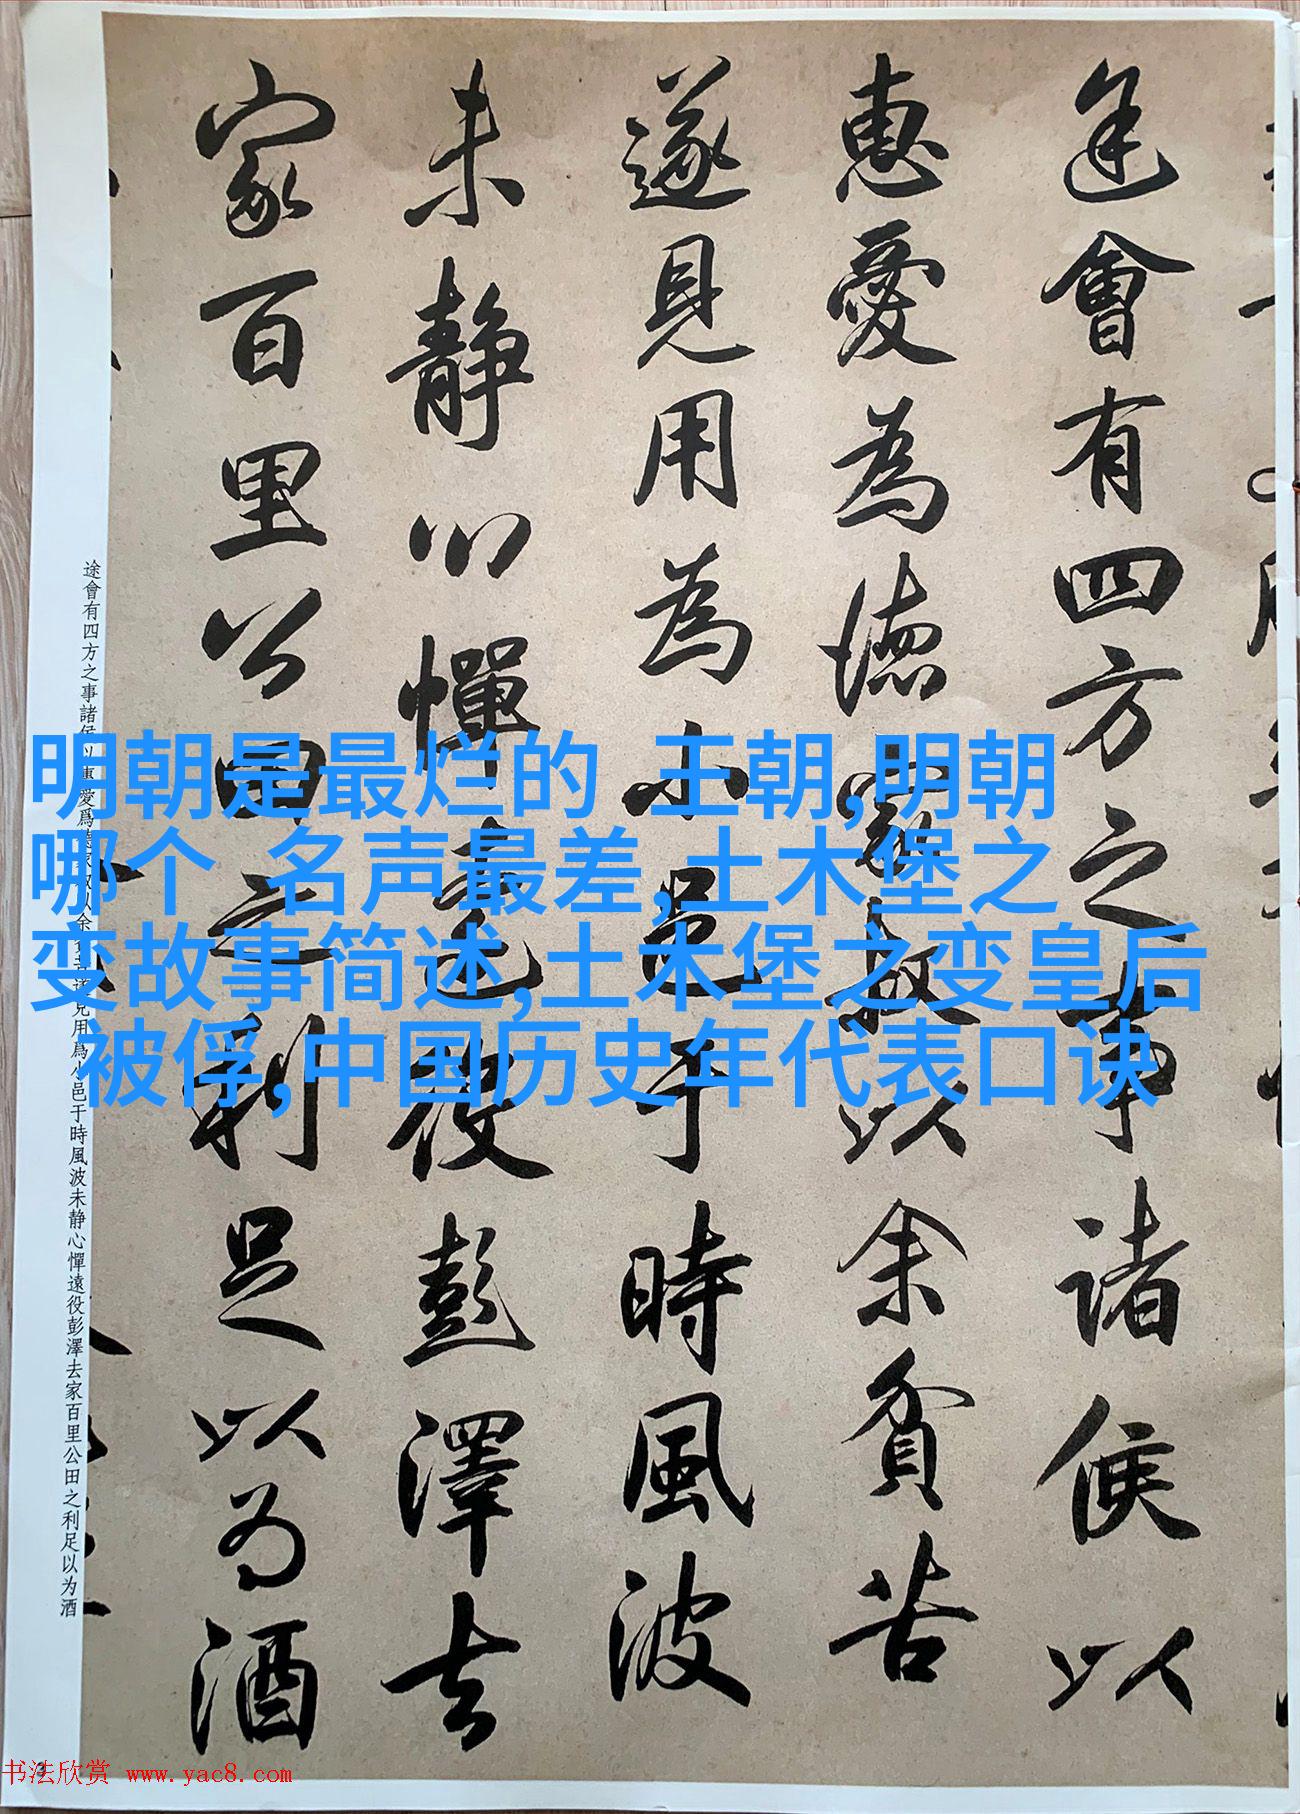 途會有四方之事諸侯以
惠愛為德家叔以余貧苦
遂見用為小邑于時風波
未靜心憚遠役彭澤去
家百里公田之利足以為酒
途會有四方之事諸侯以惠愛爲德家叔以余貧苦遂見用爲小邑于時風波未静心憚遠役彭澤去家百里公田之利足以为酒
明朝是最烂的 王朝,明朝
哪个 名声最差,土木堡之
变故事简述,土木堡之变皇后
被俘,中国历史年代表口诀
3
书法欣赏 www.yac8.com